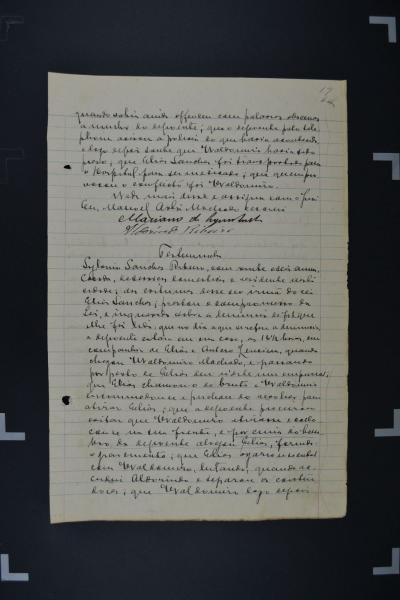 quando sahiu ainda offendeu com palavras obscenas
a mulher do depoente; que o depoente pelo tele
phone avisou a policia do que havia acontecido
e logo depois soube que Waldomiro havia sido
preso; que Gelios Sanches foi transportado para
o Hospital para ser medicado; que quem provo
cou o conflicto foi Waldomiro.
Nada mais disse e assigna com o Juiz
Eu, Manoel Machado escrivi
Mariano de
Ribeiro
Testemunha
Sylvia Sanches Ribeiro, com vinte e seis annos,
casada, de serviços domesticos e residente nesta
cidade; aos costumes disse ser irmã de
Gelios Sanches; prestou o compromisso da
lei, e inquirida sobre a denuncia de fls que
lhe foi lida; que no dia a que se refere a denuncia,
a depoente estava em sua casa, ás 16 1/2 horas, em
companhia de Gelios e Antero, quando
chegou Waldomiro Machado, e passando
por perto de Gelios deu n'este um empurrão;
que Gelios chamou-o de bruto e Waldomiro
encommodou-se e puchou do revolver para
atirar Gelios; que a depoente procurou
evitar que Waldomiro atirasse e collo
cou-se na sua frente, e por cima do hom
bro da depoente alvejou Gelios, ferindo-
o gravemente; que Gelios
com Waldomiro, luctando, quando ac
cudiu Aldorindo e separou os conten
dores; que Waldomiro logo depois